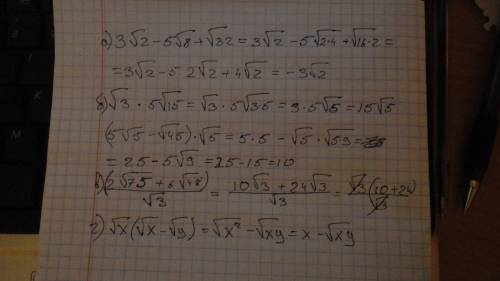 а) 3√2 - 5√8 + √32 = 3√2 - 5√2·4 + √16·2 =
= 3√2 - 5 2√2 + 4√2 = -3√2
б) √3 · 5√15 = √3 · 5√3·5 = 3·5√5 = 15√5
(5√5 - √45)·√5 = 5·5 - √5 · √5·9 =
= 25 - 5√9 = 25 - 15 = 10
в) (2√75 + 6√48)/√3 = (10√3 + 24√3)/√3 = √3(10+24)/√3
г) √x(√x - √y) = √x² - √xy = x - √xy